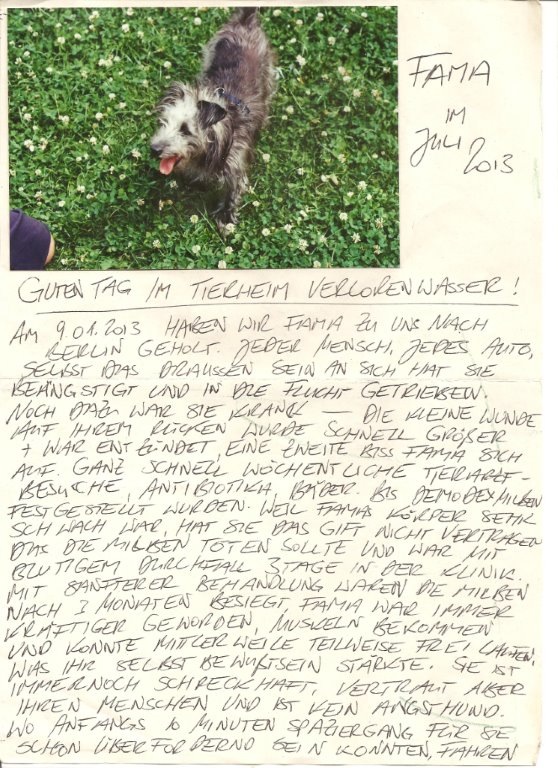 FAMA
IM
JULI
2013
GUTEN TAG IM TIERHEIM VERLORENWASSER!
AM 9.01.2013 HABEN WIR FAMA ZU UNS NACH
BERLIN GEHOLT. JEDER MENSCH, JEDES AUTO,
SELBST DAS DRAUSSEN SEIN AN SICH HAT SIE
BEÄNGSTIGT UND IN DIE FLUCHT GETRIEBEN.
NOCH DAZU WAR SIE KRANK – DIE KLEINE WUNDE
AUF IHREM RÜCKEN WURDE SCHNELL GRÖßER
+ WAR ENTZÜNDET, EINE ZWEITE BISS FAMA SICH
AUF. GANZ SCHNELL WÖCHENTLICHE TIERARZT-
BESUCHE, ANTIBIOTIKA, BÄDER. BIS DEMODESMILBEN
FESTGESTELLT WURDEN. WEIL FAMAS KÖRPER SEHR
SCHWACH WAR, HAT SIE DAS GIFT NICHT VERTRAGEN
DAS DIE MILBEN TÖTEN SOLLTE UND WAR MIT
BLUTIGEM DURCHFALL 3 TAGE IN DER KLINIK.
MIT SANFTERER BEHANDLUNG WAREN DIE MILBEN
NACH 2 MONATEN BESIEGT, FAMA WAR IMMER
KRÄFTIGER GEWORDEN, MUSKELN BEKOMMEN
UND KONNTE MITTLERWEILE TEILWEISE FREI LAUFEN,
WAS IHR SELBSTBEWUßTSEIN STÄRKTE. SIE IST
IMMERNOCH SCHRECKHAFT, VERTRAUT ABER
IHREN MENSCHEN UND IST KEIN ANGSTHUND.
WO ANFANGS 10 MINUTEN SPAZIERGANG FÜR SIE
SCHON ÜBERFORDERND SEIN KONNTEN, FAHREN